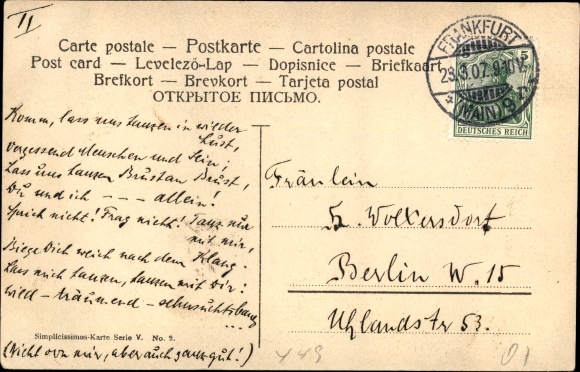 II
Carte postale — Postkarte — Cartolina postale
Post card — Levelező-Lap — Dopisnice — Briefkaart
Brefkort — Brevkort — Tarjeta postal
ОТКРЫТОЕ ПИСЬМО.
FRANKFURT
23.3.07. 9-10V.
* (MAIN) 9 r
5
DEUTSCHES REICH
Komm, lass uns tanzen in wieder
Lust,
Vergessend Menschen und Sein;
Lass uns tanzen Brust an Brust,
Du und ich - - - allein!
Sprich nicht! Frag nicht! Tanz nur
mit mir,
Biege Dich weich nach dem Klang.
Lass mich tanzen, tanzen mit Dir:
wild - träumend - sehnsuchtsbang
...
Simplicissimus-Karte Serie V. No. 2.
(Nicht von mir, aber auch ganz gut!)
Fräulein
Wolkersdorf
Berlin W. 15
Uhlandstr 53.
449
01